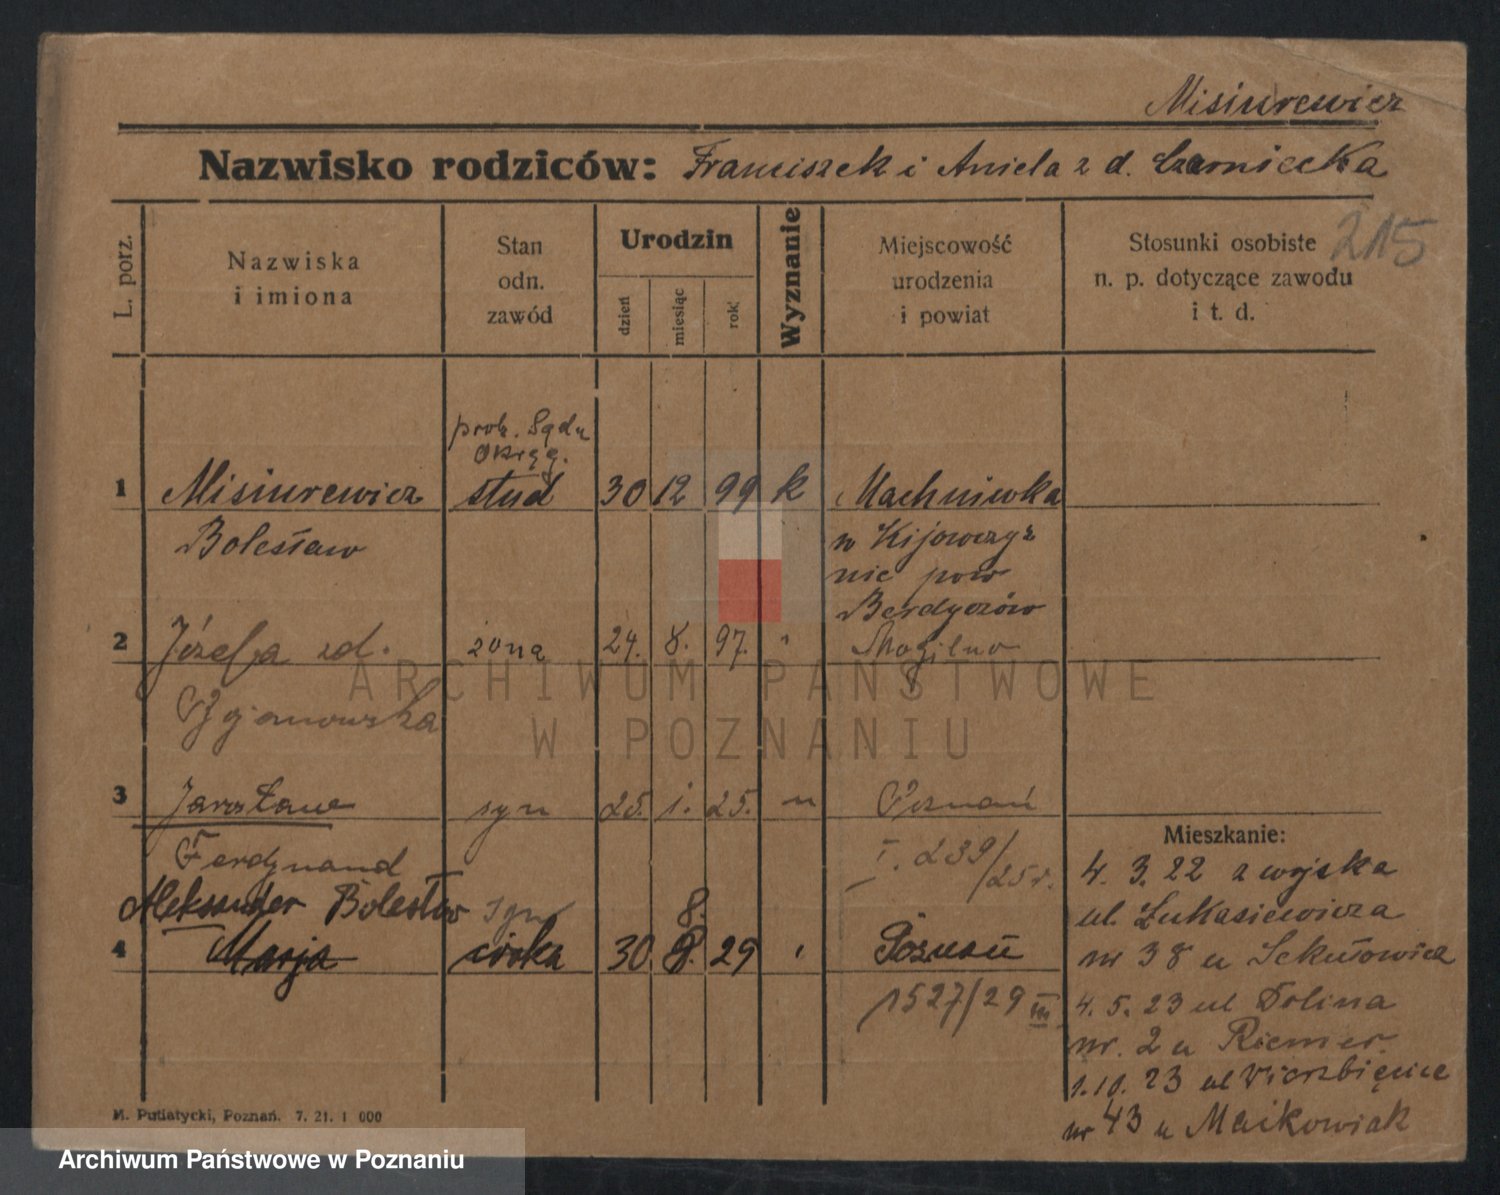 Misiurewicz
Nazwisko rodziców: Franciszek i Aniela z d. Czarniecka
215
L. porz.
Nazwiska
i imiona
Stan
odn.
zawód
Urodzin
dzień
miesiąc
rok
Wyznanie
Miejscowość
urodzenia
i powiat
Stosunki osobiste
n. p. dotyczące zawodu
i t. d.
prok. Sądu
Okręg.
1 Misiurewicz stud 30 12 99 k Machniwka
Bolesław w Kijowczyź
nie pow
Berdyczów
2 Józefa zd. żona 24. 8. 97. " Mogilno
3 Jarosław syn 25. 1. 25. " Poznań
Ferdynand I. 239/25r.
Aleksander Bolesław syn 8.
4 Marja córka 30 8. 29 " Poznań
1527/29 III
Mieszkanie:
4. 3. 22 z wojska
ul. Łukasiewicza
nr 38 u
4. 5. 23 ul Dolina
nr. 2 u Riemer
1.10. 23 ul Wierzbięcice
nr 43 u Maikowiak
ARCHIWUM PAŃSTWOWE
W POZNANIU
M. Putiatycki, Poznań. 7. 21. 1 000
Archiwum Państwowe w Poznaniu